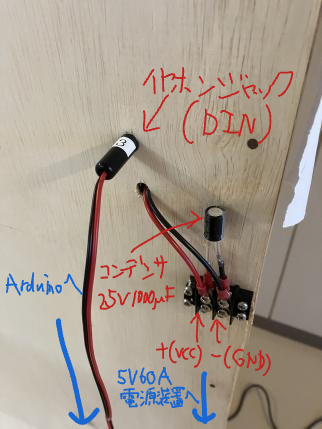 イヤホンジャック
(DIN)
3
コンデンサ
25V1000μF
Arduinoへ
+(VCC) -(GND)
5V60A
電源装置へ